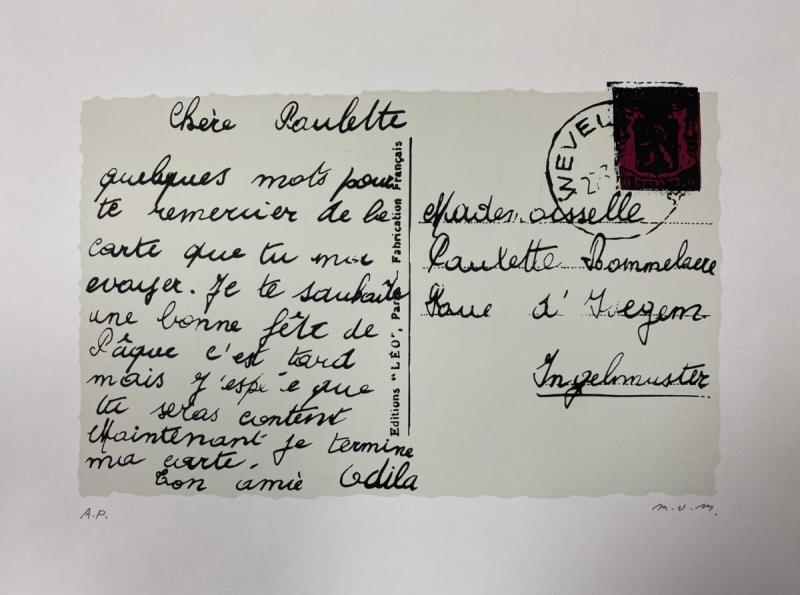 Chère Paulette
quelques mots pour
te remercier de la
carte que tu ma
evoyer. Je te souhaite
une bonne fête de
Pâque c'est tard
mais j'espè e que
tu seras content
Maintenant je termine
ma carte.
Ton amie Odila
Editions "LÉO", Par Fabrication Français
WEVEL
Mademoisselle
Paulette Bommelaere
d'
Ingelmuster
A.P.
M.V.M.